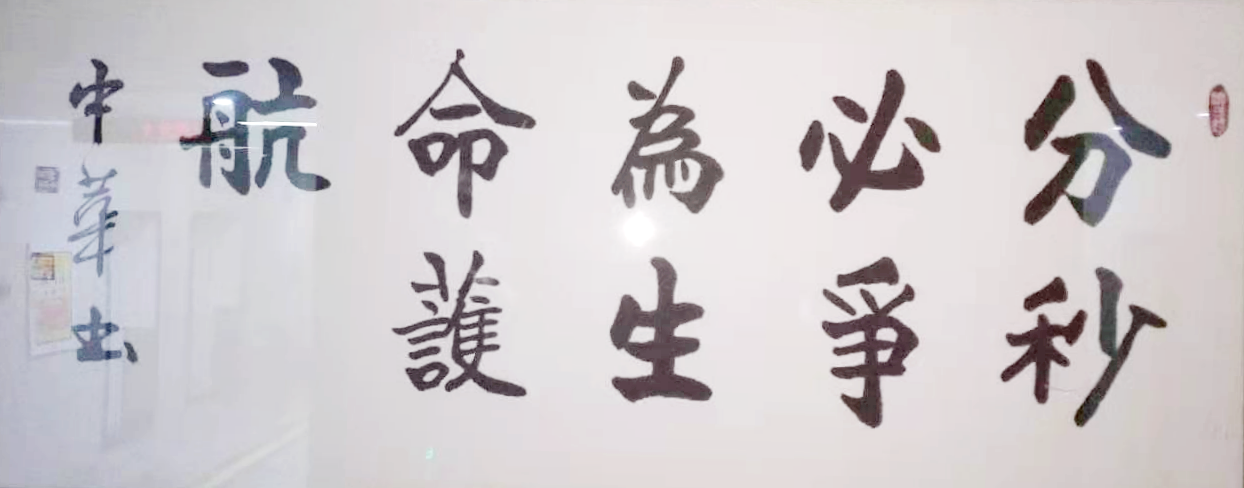 分秒
必爭
為生
命護
航
中華书